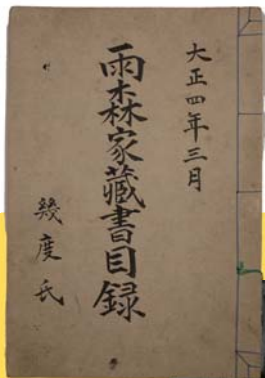 大正四年三月
雨森家藏書目録
幾度氏